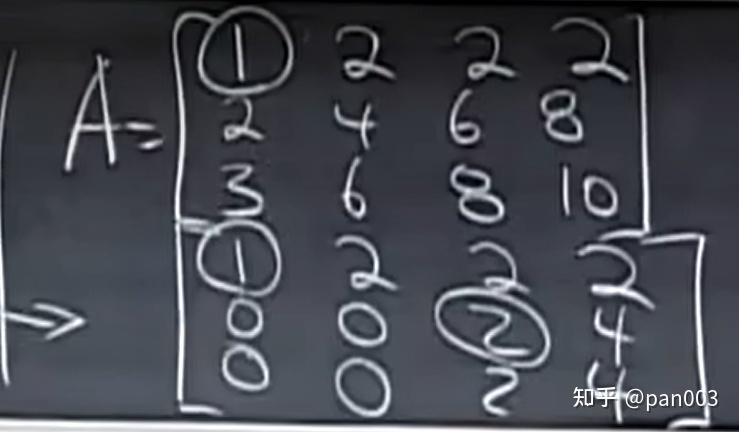 A= 1 2 2 2
2 4 6 8
3 6 8 10
→ 1 2 2 2
0 0 2 4
0 0 2 4
知乎 @pan003